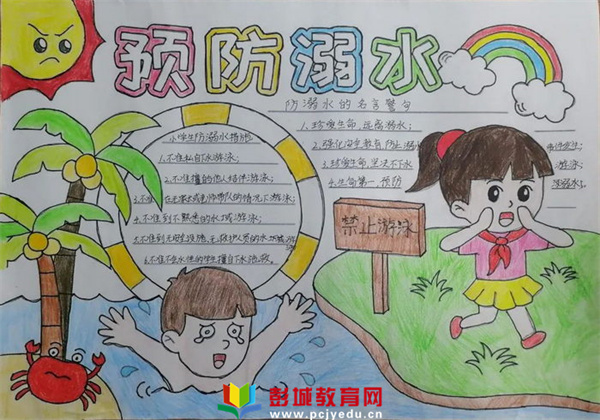 预防溺水
防溺水的名言警句
1.珍爱生命,远离溺水;
2.强化安全教育 防止溺
3.珍爱生命,坚决不下水
4.生命第一,预防
小学生防溺水措施
1.不准私自下水游泳;
2.不准擅自与他人结伴游泳;
3.不准在无家长或老师带队的情况下游泳;
4.不准到不熟悉的水域游泳;
5.不准到无安全设施、无救护人员的水域游泳
6.不准不会水性的学生擅自下水施救。
禁止游泳
彭城教育网
www.pcjyedu.cn